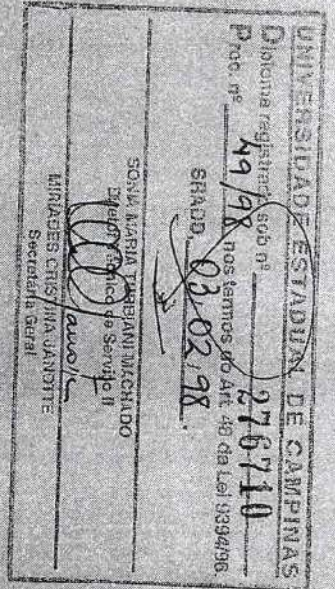 UNIVERSIDADE ESTADUAL DE CAMPINAS
Diploma registrado sob nº 276710
Proc. nº 49/98 nos termos do Art. 48 da Lei 9394/96.
03,02,98
SONIA MARIA MACHADO
Técnico de Serviço II
MIRIADES CRISTINA JANOTTE
Secretária Geral